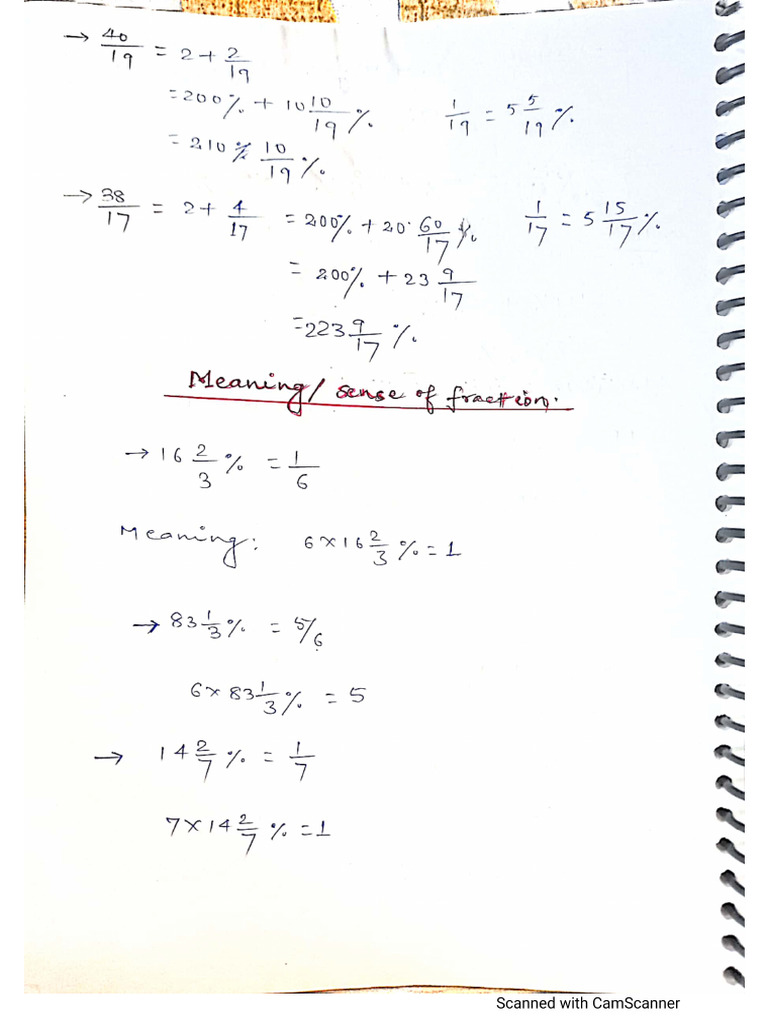 → 40/19 = 2 + 2/19
= 200% + 10 10/19 %. 1/19 = 5 5/19 %.
= 210 % 10/19 %.
→ 38/17 = 2 + 4/17 = 200% + 20 60/17 %. 1/17 = 5 15/17 %.
= 200% + 23 9/17
= 223 9/17 %.
Meaning/ sense of fraction.
→ 16 2/3 % = 1/6
Meaning: 6 × 16 2/3 % = 1
→ 83 1/3 % = 5/6
6 × 83 1/3 % = 5
→ 14 2/7 % = 1/7
7 × 14 2/7 % = 1
Scanned with CamScanner